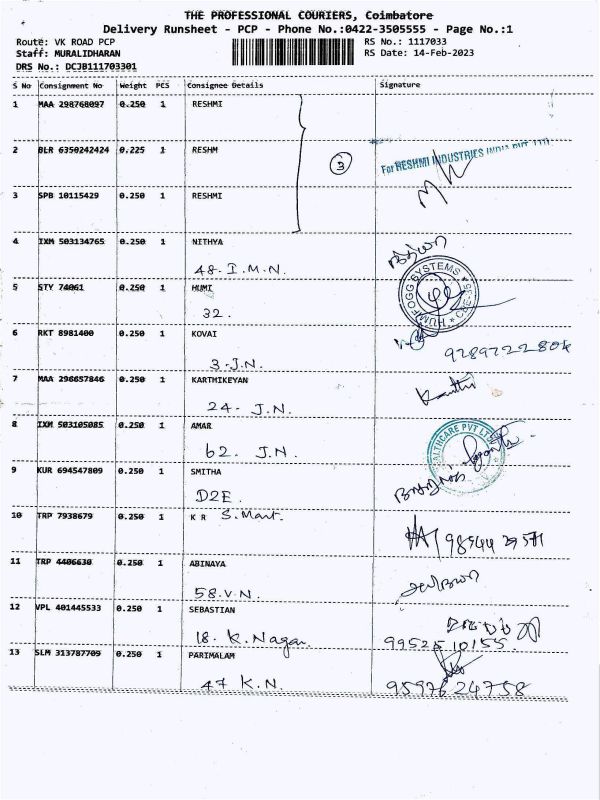 THE PROFESSIONAL COURIERS, Coimbatore
Delivery Runsheet - PCP - Phone No.:0422-3505555 - Page No.:1
Route: VK ROAD PCP RS No.: 1117033
Staff: MURALIDHARAN RS Date: 14-Feb-2023
DRS No.: DCJB111703301
S No Consignment No Weight PCS Consignee Details Signature
1 MAA 298768097 0.250 1 RESHMI
2 BLR 6350242424 0.225 1 RESHM
3
For RESHMI INDUSTRIES INDIA PVT. LTD
3 SPB 10115429 0.250 1 RESHMI
4 IXM 503134765 0.250 1 NITHYA
48. I.M.N.
5 STY 74061 0.250 1 HUMI
HUMIFOGG SYSTEMS * CBE-35 *
32.
6 RKT 8981400 0.250 1 KOVAI
9789722804
3-J.N.
7 MAA 296657846 0.250 1 KARTHIKEYAN
24- J.N.
8 IXM 503105085 0.250 1 AMAR
ALTHCARE PVT LT
62. J.N.
9 KUR 694547809 0.250 1 SMITHA
D2E.
10 TRP 7938679 0.250 1 K R S. Mart.
98544 29571
11 TRP 4406630 0.250 1 ABINAYA
58.V.N.
12 VPL 401445533 0.250 1 SEBASTIAN
18. K. Nagar
99525 10155.
13 SLM 313787709 0.250 1 PARIMALAM
47 K.N.
95976 24758